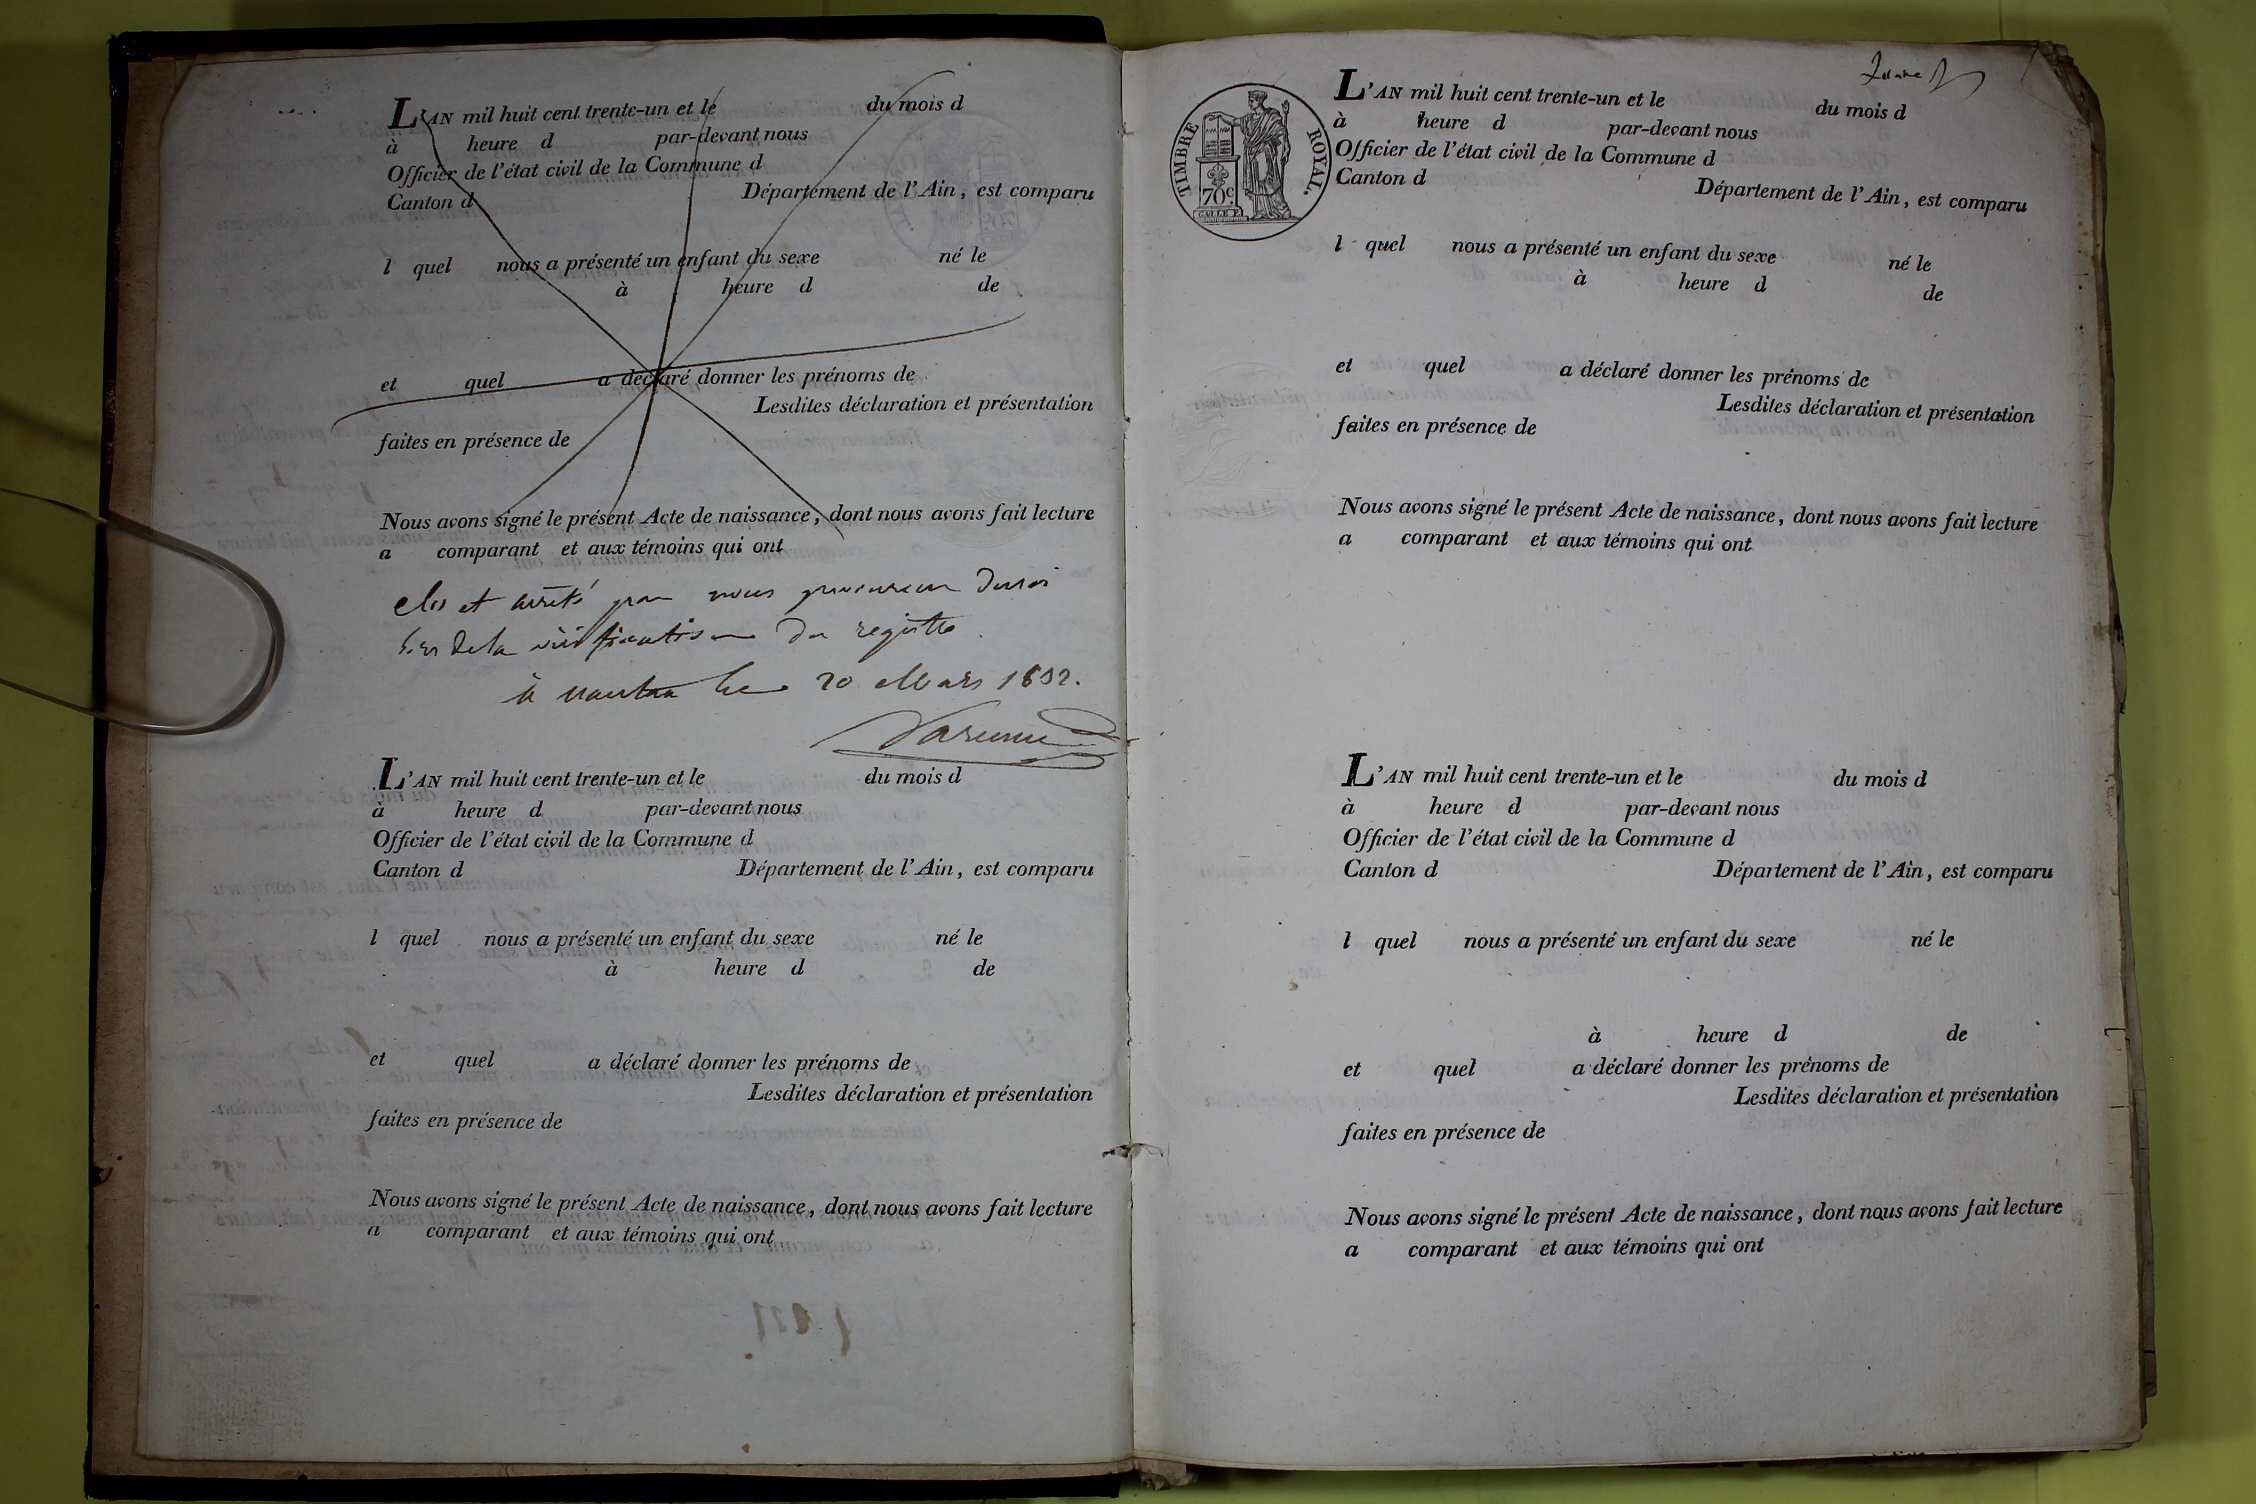 L'AN mil huit cent trente-un et le du mois d
à heure d par-devant nous
Officier de l'état civil de la Commune d
Canton d Département de l'Ain, est comparu
l quel nous a présenté un enfant du sexe né le
à heure d de
et quel a déclaré donner les prénoms de
Lesdites déclaration et présentation
faites en présence de
Nous avons signé le présent Acte de naissance, dont nous avons fait lecture
a comparant et aux témoins qui ont
clos et arrêté par nous procureur du roi
lors de la vérification du registre
à nantua le 20 Mars 1832.
L'AN mil huit cent trente-un et le du mois d
à heure d par-devant nous
Officier de l'état civil de la Commune d
Canton d Département de l'Ain, est comparu
l quel nous a présenté un enfant du sexe né le
à heure d de
et quel a déclaré donner les prénoms de
Lesdites déclaration et présentation
faites en présence de
Nous avons signé le présent Acte de naissance, dont nous avons fait lecture
a comparant et aux témoins qui ont
TIMBRE ROYAL.
70c.
L'AN mil huit cent trente-un et le du mois d
à heure d par-devant nous
Officier de l'état civil de la Commune d
Canton d Département de l'Ain, est comparu
l quel nous a présenté un enfant du sexe né le
à heure d de
et quel a déclaré donner les prénoms de
Lesdites déclaration et présentation
faites en présence de
Nous avons signé le présent Acte de naissance, dont nous avons fait lecture
a comparant et aux témoins qui ont
L'AN mil huit cent trente-un et le du mois d
à heure d par-devant nous
Officier de l'état civil de la Commune d
Canton d Département de l'Ain, est comparu
l quel nous a présenté un enfant du sexe né le
à heure d de
et quel a déclaré donner les prénoms de
Lesdites déclaration et présentation
faites en présence de
Nous avons signé le présent Acte de naissance, dont nous avons fait lecture
a comparant et aux témoins qui ont